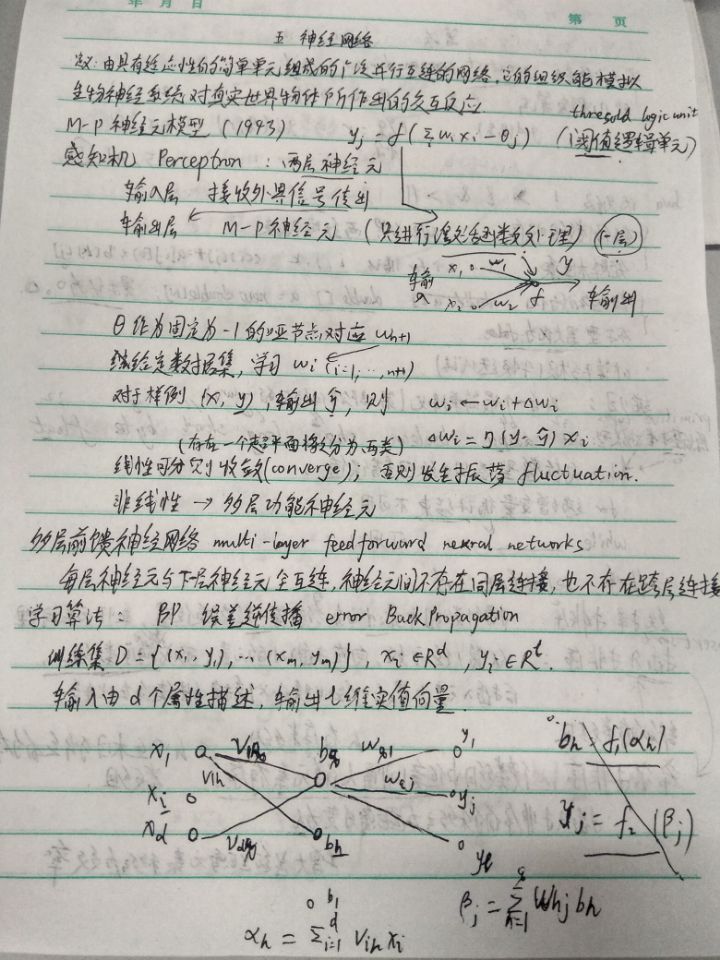 年 月 日
第 页
五 神经网络
定义: 由具有适应性的简单单元组成的广泛并行互连的网络，它的组织能模拟
生物神经系统对真实世界物体所作出的交互反应.
M-P神经元模型 (1943) yj = f(Σi wi xi - θj) (阈值逻辑单元)
thresold logic unit
感知机 Perceptron : 两层神经元
输入层 接收外界信号传出
输出层 M-P神经元 (只进行激活函数处理) (一层)
输入 x1 w1 x2 w2 f y 输出
θ作为固定为-1的哑节点对应 wn+1
给定数据集, 学习 wi (i=1, ..., n+1)
对于样例 (x, y), 输出 ŷ, 则 wi ← wi + Δwi
(存在一个超平面将之分为两类) Δwi = η (y - ŷ) xi
线性可分则收敛(converge); 否则发生振荡 fluctuation.
非线性 → 多层功能神经元
多层前馈神经网络 multi-layer feedforward neural networks
每层神经元与下层神经元全互连, 神经元间不存在同层连接, 也不存在跨层连接
学习算法: BP 误差逆传播 error BackPropagation
训练集 D = {(x1, y1), ... (xm, ym)}, xi ∈ R^d, yi ∈ R^t.
输入由d个属性描述, 输出t维实值向量.
x1 v1h w y1 bh = f1(αh)
xi wj yj yj = f2 (βj)
xd bh yt
b1 βj = Σ h=1 q whj bh
αh = Σ i=1 d vih xi